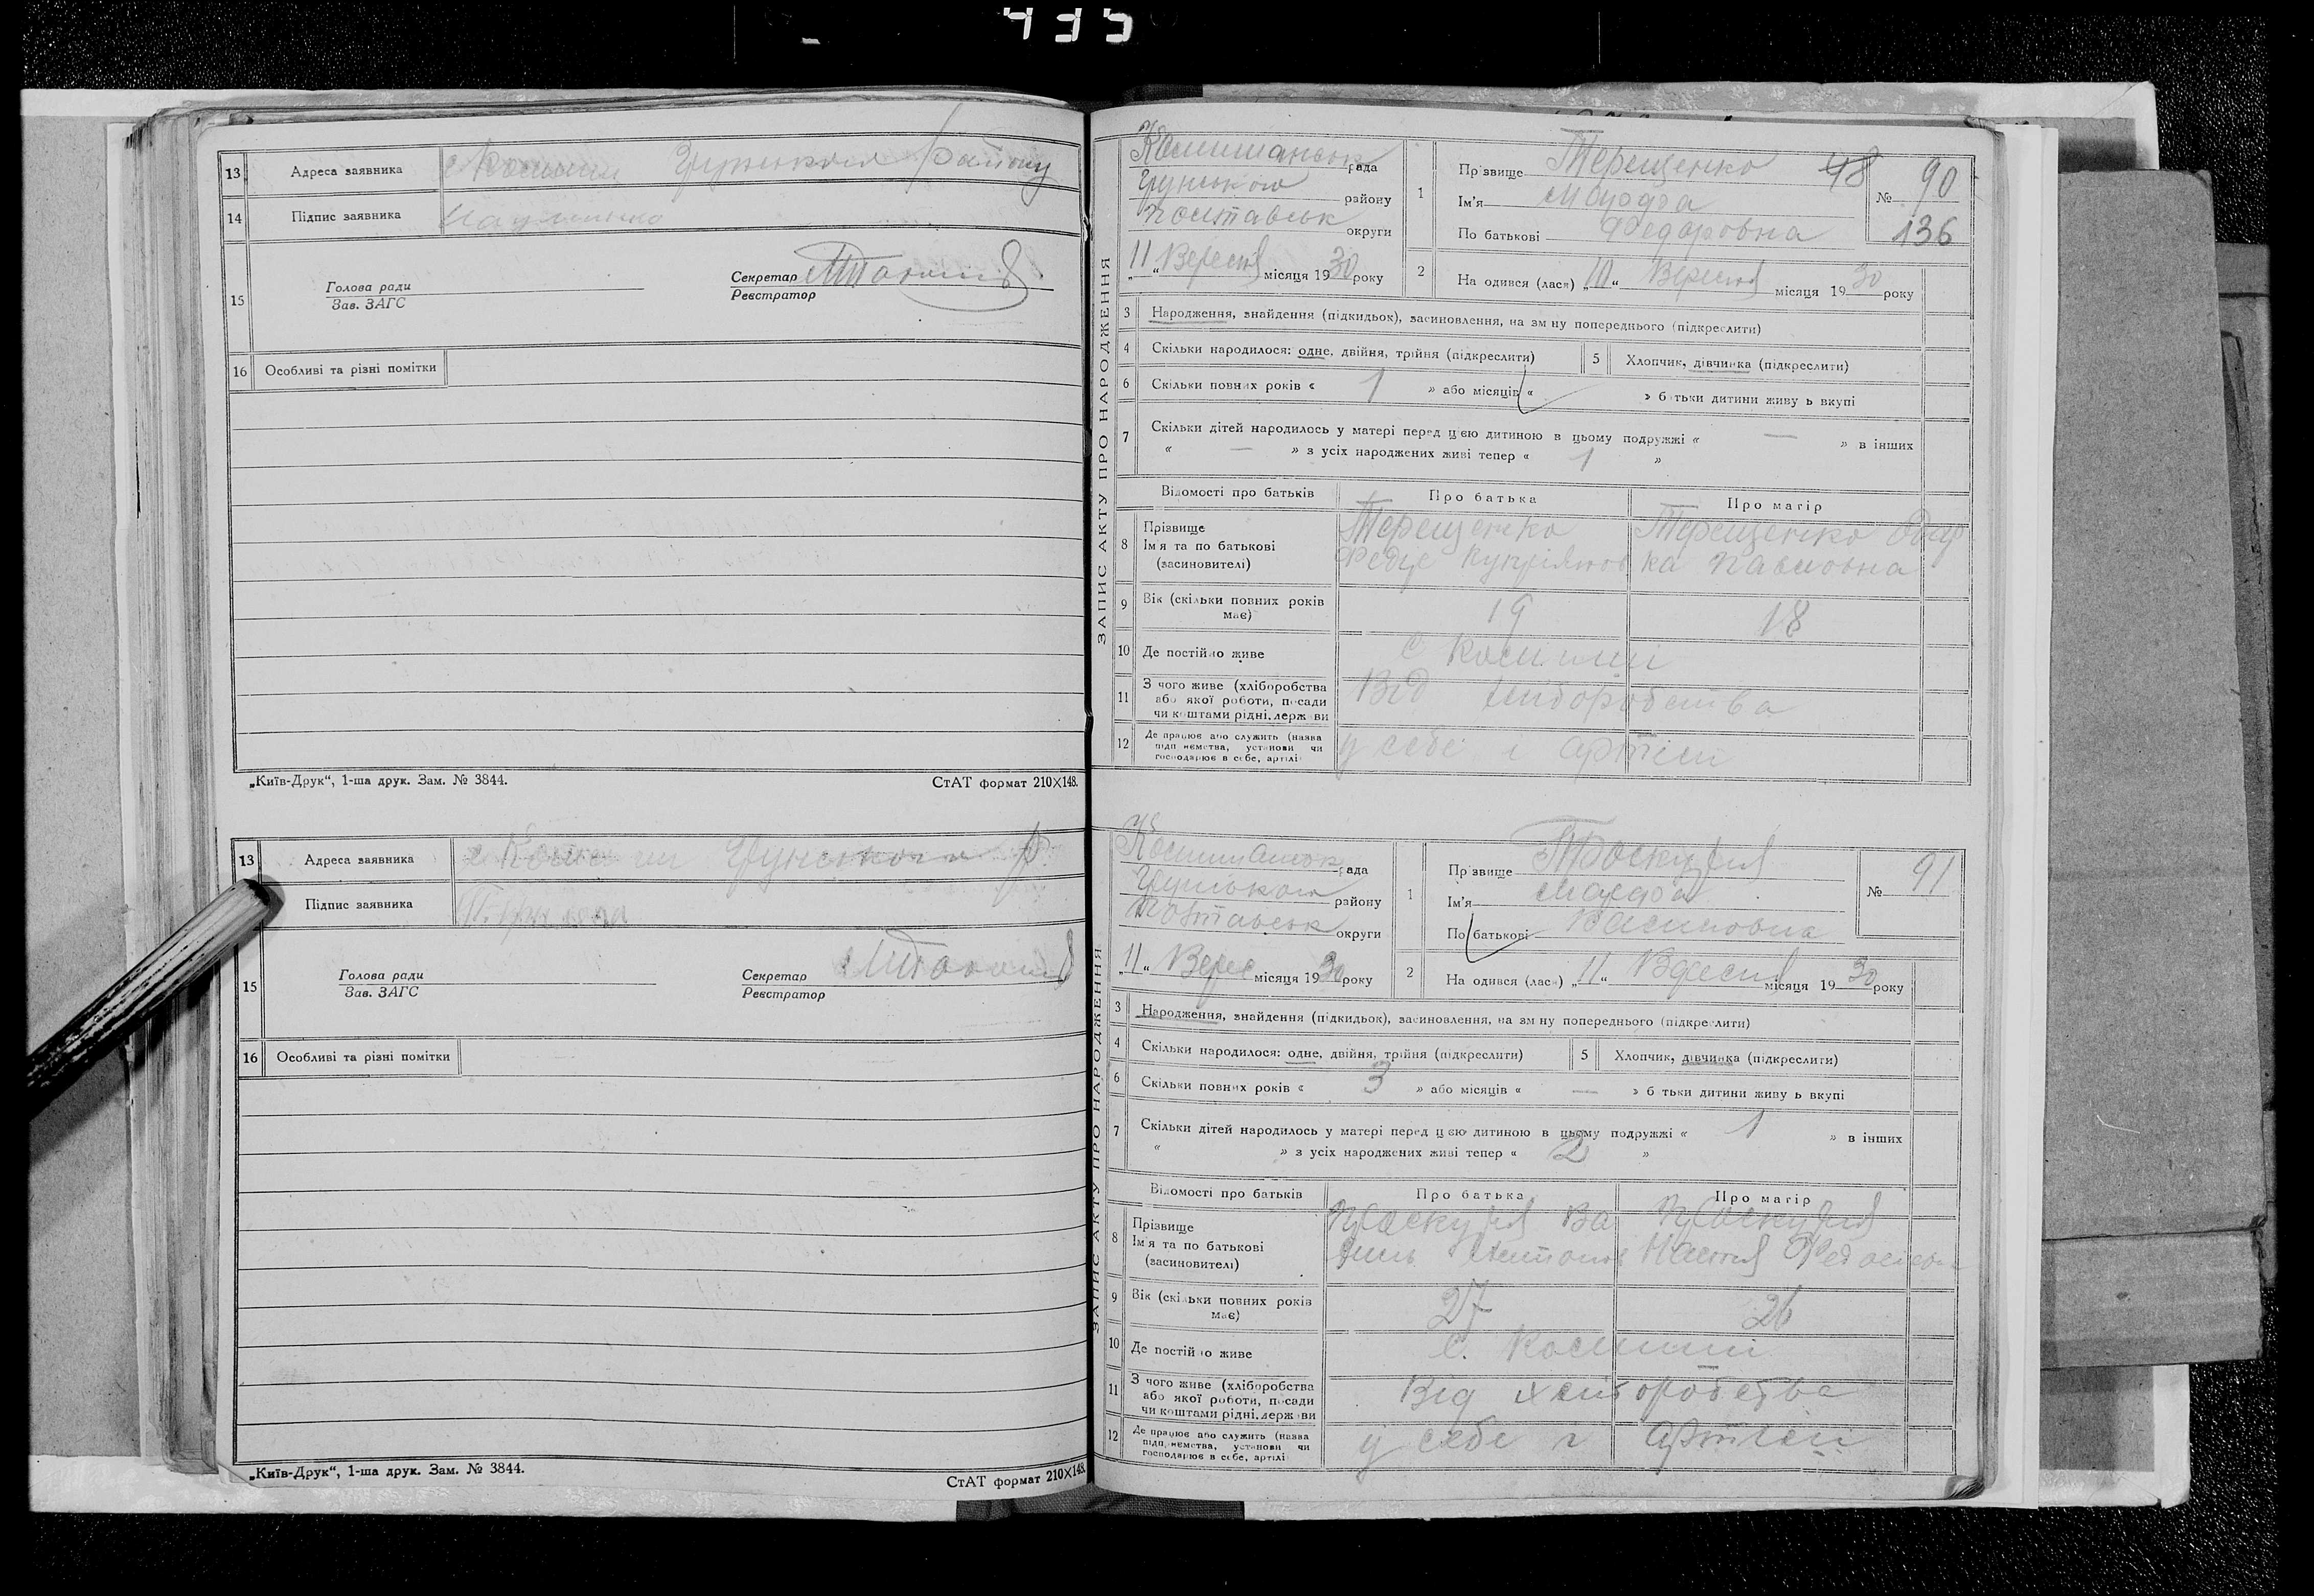 435
13 Адреса заявника Грунського Району
14 Підпис заявника
15 Голова ради
Зав. ЗАГС
Секретар
Реєстратор
16 Особливі та різні помітки
„Київ-Друк“, 1-ша друк. Зам. № 3844.
СтАТ формат 210×148.
13 Адреса заявника Грунського Р.
Підпис заявника
15 Голова ради
Зав. ЗАГС
Секретар
Реєстратор
16 Особливі та різні помітки
„Київ-Друк“, 1-ша друк. Зам. № 3844.
СтАТ формат 210×148.
ЗАПИС АКТУ ПРО НАРОДЖЕННЯ
рада
Грунського району
Полтавськ округи
„11“ Вересня місяця 1930 року
1 Прізвище Терещенко 48
Ім'я
По батькові Федоровна
№ 90
136
2 На одився (лася) „10“ Вересня місяця 1930 року
3 Народження, знайдення (підкидьок), засиновлення, на зм ну попереднього (підкреслити)
4 Скільки народилося: одне, двійня, трійня (підкреслити)
5 Хлопчик, дівчинка (підкреслити)
6 Скільки повних років « 1 » або місяців « » б тьки дитини живу ь вкупі
7 Скільки дітей народилось у матері перед цією дитиною в цьому подружжі « — » в інших
« — » з усіх народжених живі тепер « 1 »
Відомості про батьків
Про батька
Про матір
8 Прізвище
Ім'я та по батькові
(засиновителі)
Терещенко
Терещенко Одар
ка Павловна
9 Вік (скільки повних років має)
19
18
10 Де постійно живе
11 З чого живе (хліборобства або якої роботи, посади чи коштами рідні, держ ви
Від хліборобства
12 Де працює або служить (назва підп иємства, установи чи господарює в себе, артілі
у себе і артіли
ЗАПИС АКТУ ПРО НАРОДЖЕННЯ
рада
Грунського району
Полтавськ округи
„11“ Верес місяця 1930 року
1 Прізвище Проскурня
Ім'я
По батькові Василовна
№ 91
2 На одився (лася) „11“ Вересня місяця 1930 року
3 Народження, знайдення (підкидьок), засиновлення, на зм ну попереднього (підкреслити)
4 Скільки народилося: одне, двійня, трійня (підкреслити)
5 Хлопчик, дівчинка (підкреслити)
6 Скільки повних років « 3 » або місяців « — » б тьки дитини живу ь вкупі
7 Скільки дітей народилось у матері перед цією дитиною в цьому подружжі « 1 » в інших
« » з усіх народжених живі тепер « 2 »
Відомості про батьків
Про батька
Про матір
8 Прізвище
Ім'я та по батькові
(засиновителі)
Проскурня Ва
Проскурня
Настя
9 Вік (скільки повних років має)
27
26
10 Де постійно живе
11 З чого живе (хліборобства або якої роботи, посади чи коштами рідні, держ ви
Від хліборобства
12 Де працює або служить (назва підп иємства, установи чи господарює в себе, артілі
у себе